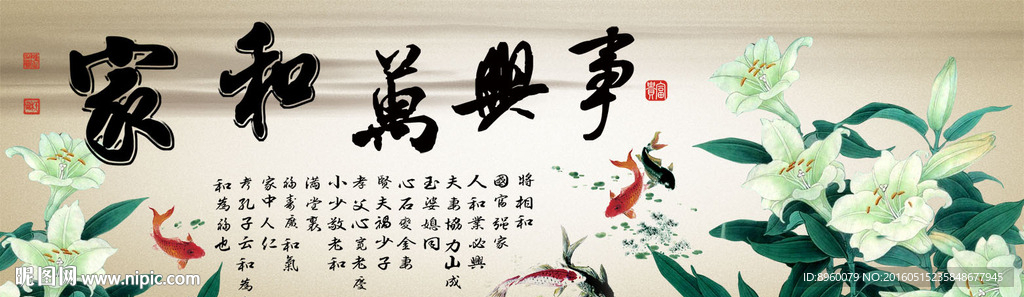 家和萬興事
富貴
將相和
國富强家
人和業必興
夫妻協力山成
玉婆媳同
心石变金妻
賢夫禍少子
孝父心宽老
小少敬老和
滿堂裏
福壽廣和氣
家中人仁
孔子云和為
和為福也
昵图网 www.nipic.com
ID:8960079 NO:20160515235848677945